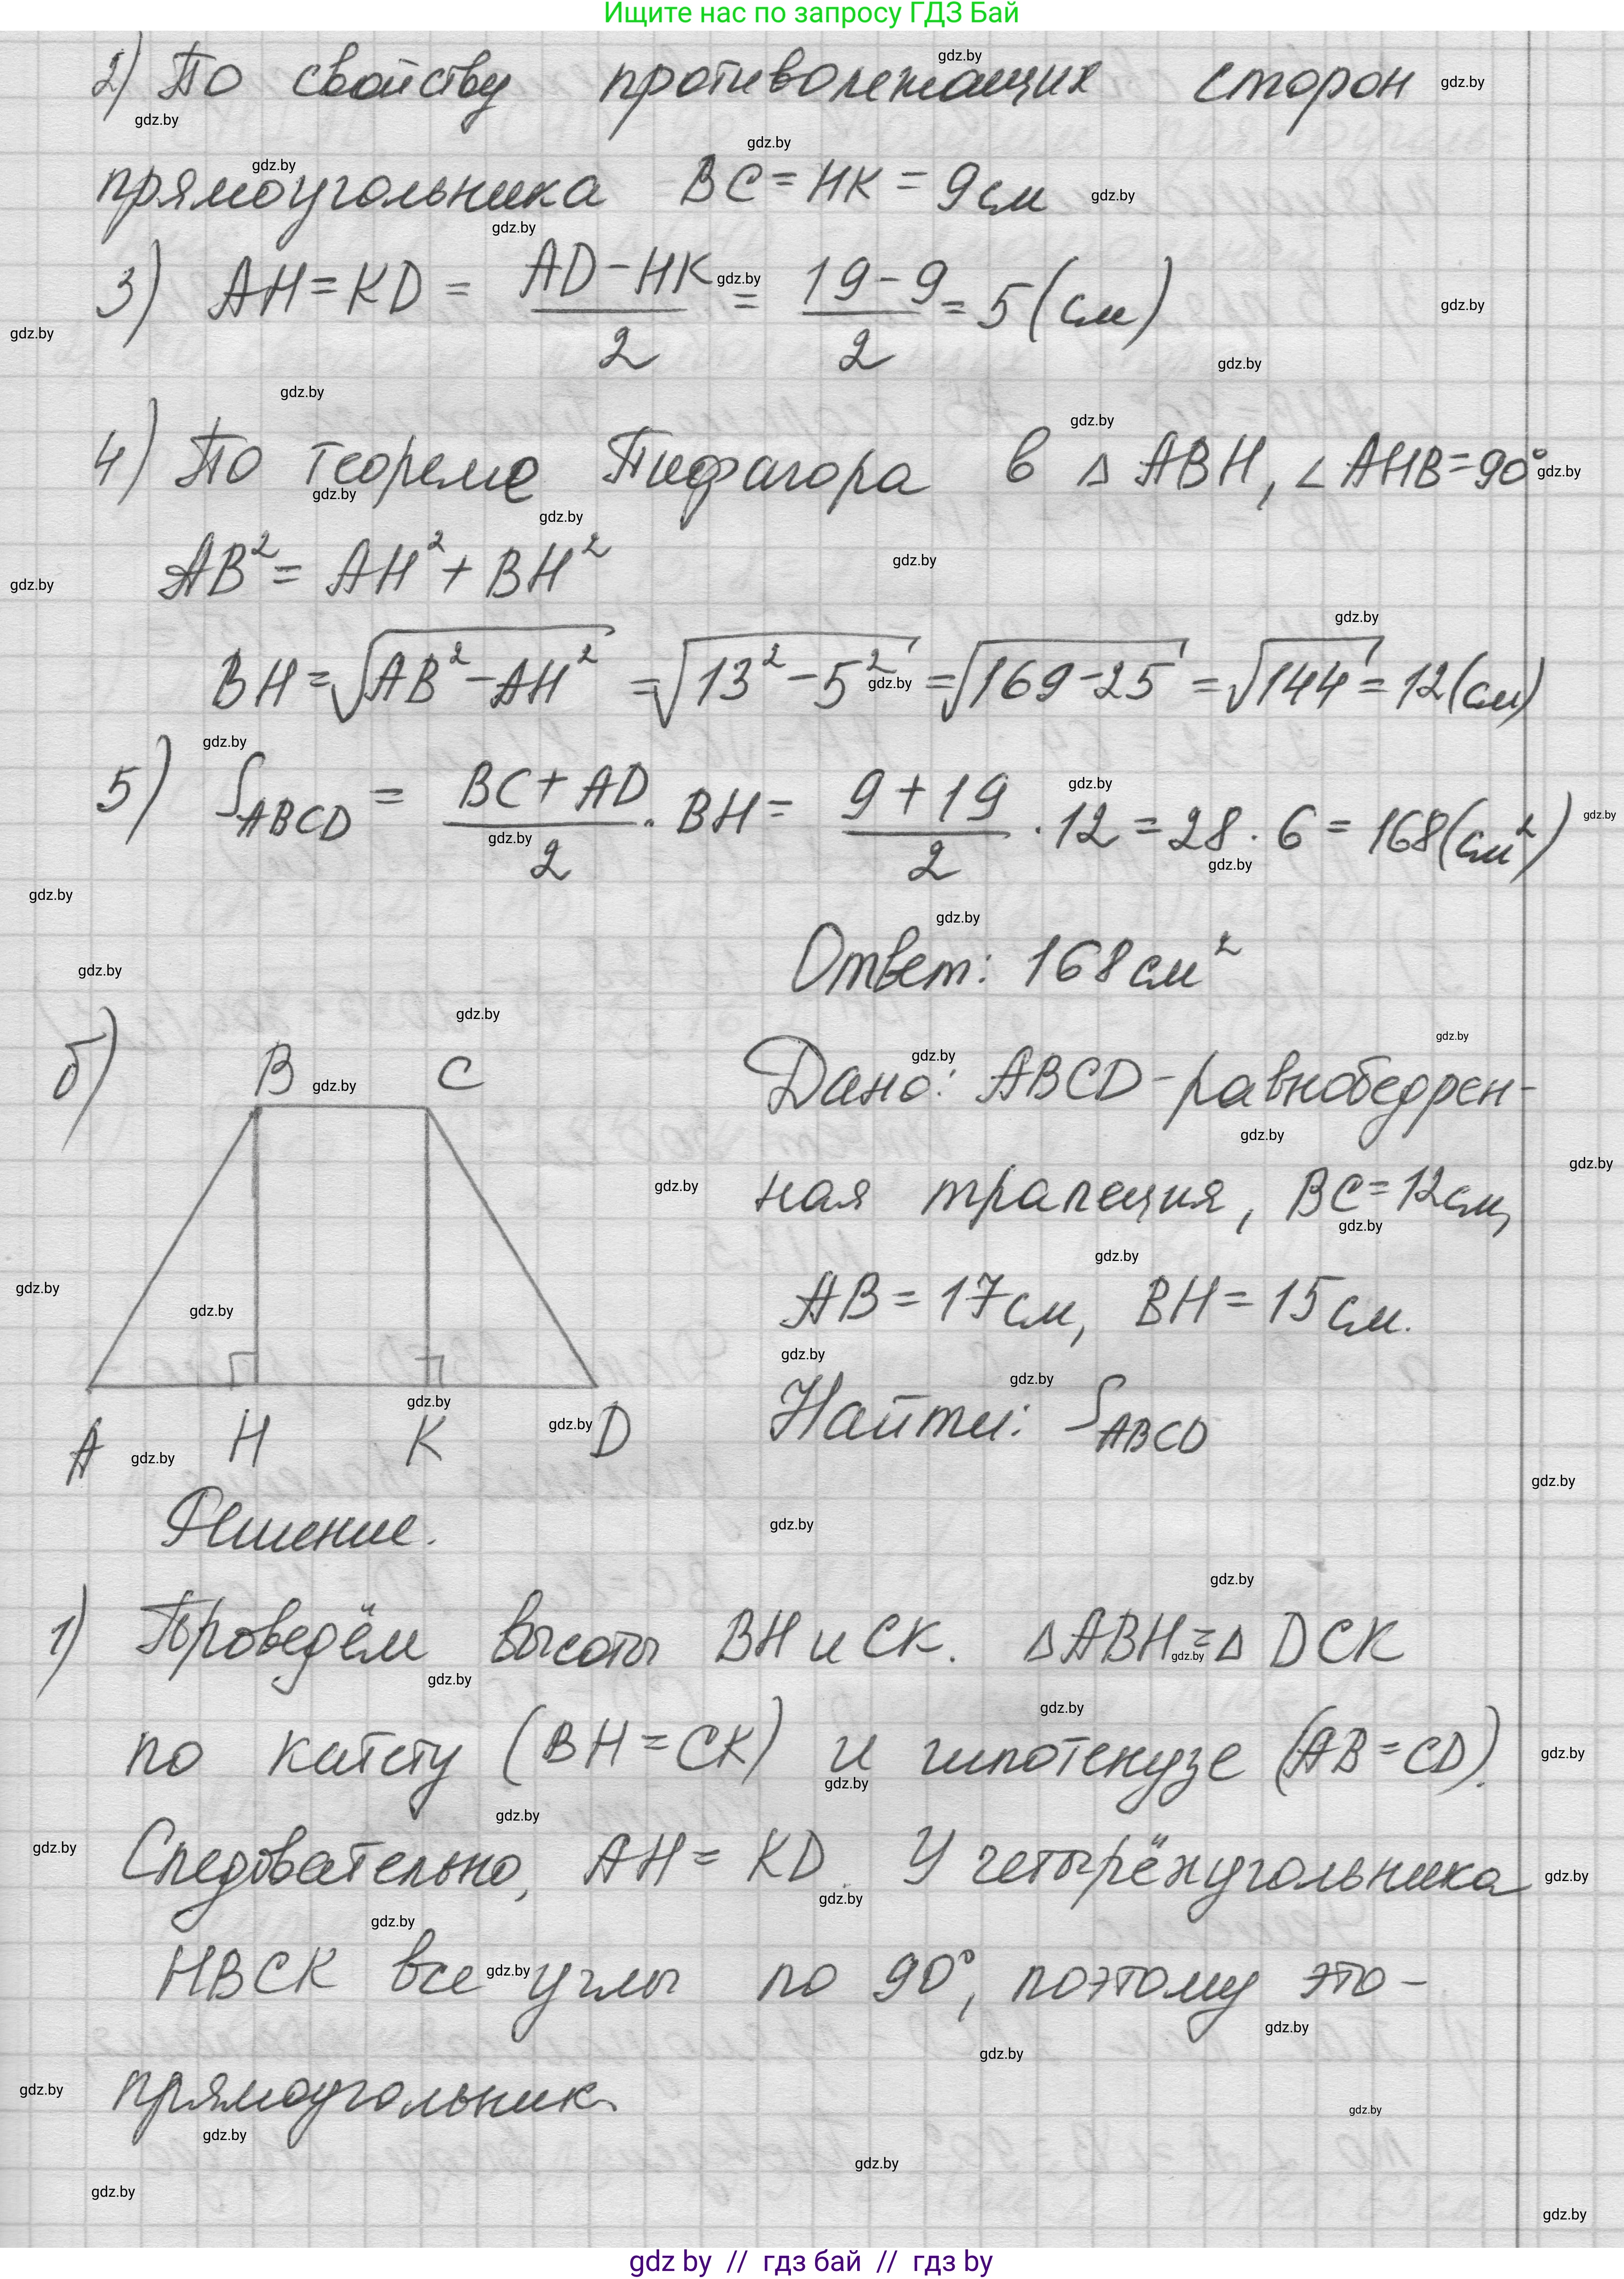 Ищите нас по запросу ГДЗ Бай
2) По свойству противолежащих сторон
прямоугольника BC = HK = 9 см
3) AH = KD = (AD − HK)/2 = (19 − 9)/2 = 5 (см)
4) По теореме Пифагора в △ ABH, ∠ AHB = 90°
AB² = AH² + BH²
BH = √(AB² − AH²) = √(13² − 5²) = √(169 − 25) = √144 = 12 (см)
5) S_ABCD = (BC + AD)/2 · BH = (9 + 19)/2 · 12 = 28 · 6 = 168 (см²)
Ответ: 168 см²
б)
B C
A H K D
Дано: ABCD – равнобедрен-
ная трапеция, BC = 12 см,
AB = 17 см, BH = 15 см.
Найти: S_ABCD
Решение.
1) Проведём высоты BH и CK. △ ABH = △ DCK
по катету (BH = CK) и гипотенузе (AB = CD).
Следовательно, AH = KD. У четырёхугольника
HBCK все углы по 90°, поэтому это –
прямоугольник.
gdz by // гдз бай // гдз by